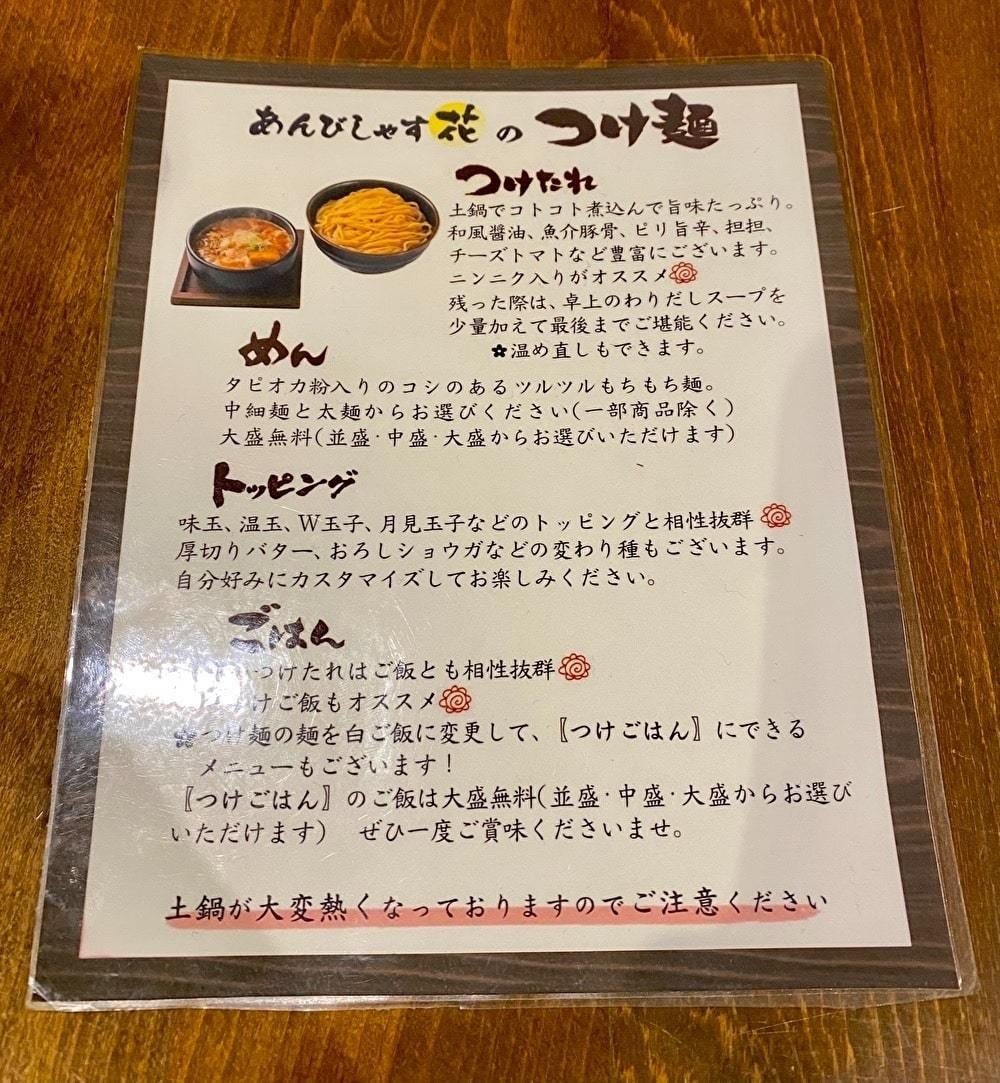 あんびしゃす花のつけ麺
つけたれ
土鍋でコトコト煮込んで旨味たっぷり。
和風醤油、魚介豚骨、ピリ旨辛、担担、
チーズトマトなど豊富にございます。
ニンニク入りがオススメ
残った際は、卓上のわりだしスープを
少量加えて最後までご堪能ください。
✿温め直しもできます。
めん
タピオカ粉入りのコシのあるツルツルもちもち麺。
中細麺と太麺からお選びください(一部商品除く)
大盛無料(並盛・中盛・大盛からお選びいただけます)
トッピング
味玉、温玉、W玉子、月見玉子などのトッピングと相性抜群
厚切りバター、おろしショウガなどの変わり種もございます。
自分好みにカスタマイズしてお楽しみください。
ごはん
つけたれはご飯とも相性抜群
けご飯もオススメ
✿つけ麺の麺を白ご飯に変更して、〖つけごはん〗にできる
メニューもございます！
〖つけごはん〗のご飯は大盛無料(並盛・中盛・大盛からお選び
いただけます) ぜひ一度ご賞味くださいませ。
土鍋が大変熱くなっておりますのでご注意ください